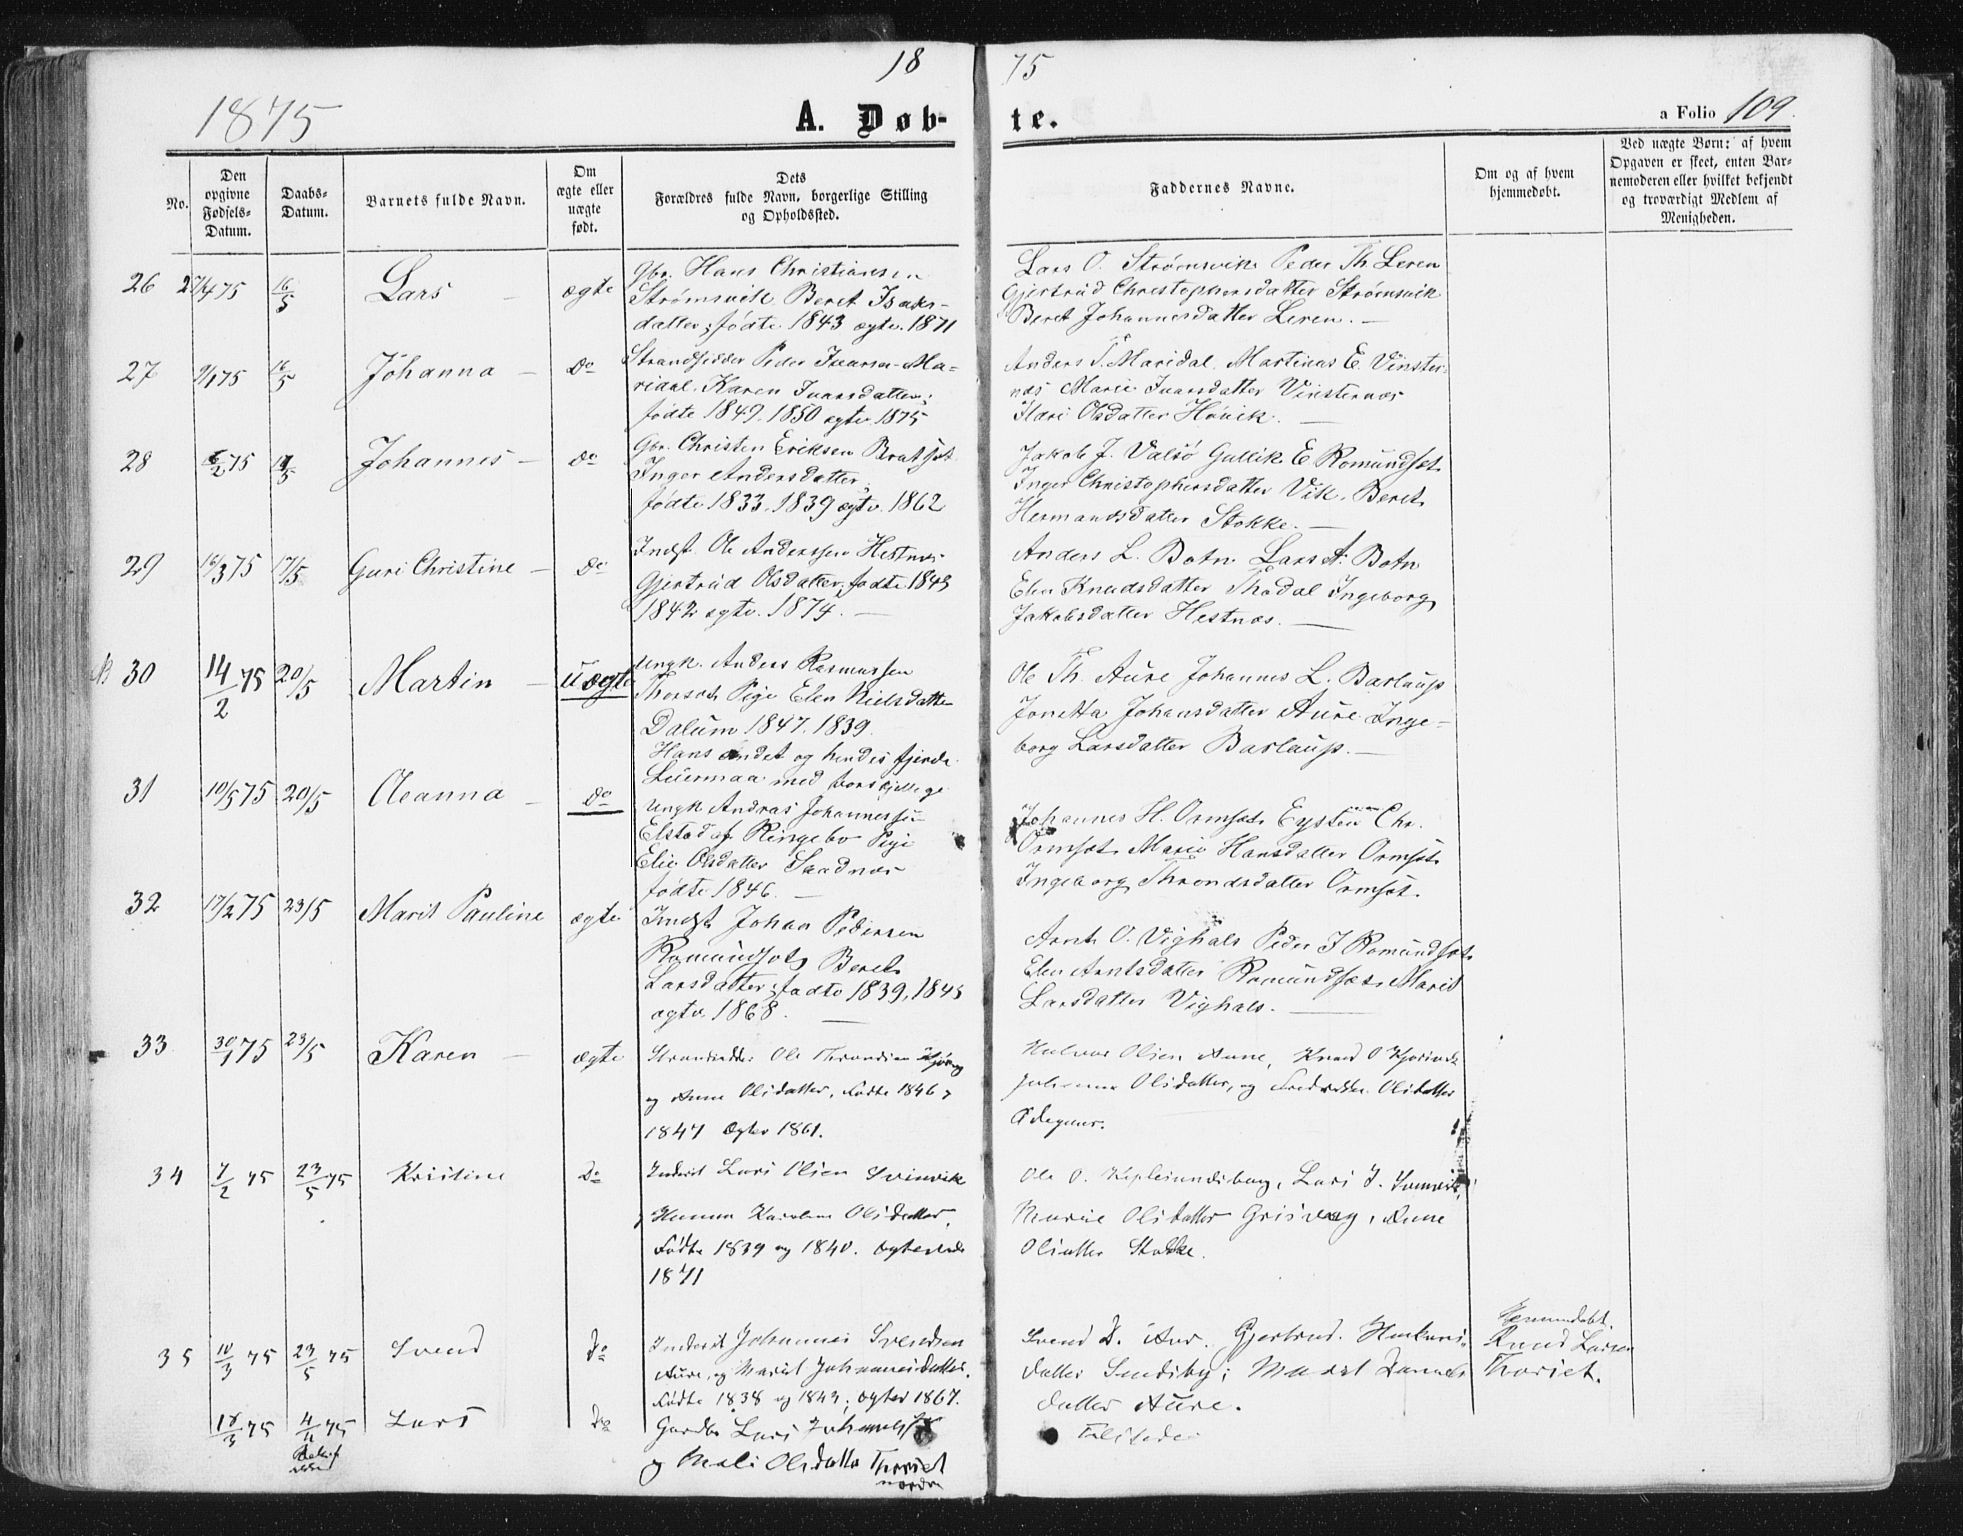 18 75
1875 A. Døb- te. a Folio 109.
No.
Den opgivne Fødsels-Datum.
Daabs-Datum.
Barnets fulde Navn.
Om ægte eller uægte født.
Dets Forældres fulde Navn, borgerlige Stilling og Opholdssted.
Faddernes Navne.
Om og af hvem hjemmedøbt.
Ved uægte Børn: af hvem Opgaven er skeet, enten Barnemoderen eller hvilket bekjendt og troværdigt Medlem af Menigheden.
26 27/4 75 16/5 Lars – ægte
Gbr. Hans Christiansen
Strømsvik Beret Isaks-
datter; fødte 1843 ægtv. 1871
Lars O. Strømsvik Peder Th. Leren
Gjertrud Christophersdatter Strømsvik
Beret Johannesdatter Leren. –
27 9/1 75 16/5 Johanna – Do
Strandsidder Peder Ivarsen Ma-
ridal. Karen Ivarsdatter;
fødte 1849. 1850 ægtv. 1875
Anders T. Maridal. Martinus E. Vinster-
næs Marie Ivarsdatter Vinsternæs
Olsdatter Høvik. –
28 6/2 75 17/5 Johannes – Do
Gbr. Christen Eriksen Bratset
Inger Andersdatter;
fødte 1833. 1839 ægtv. 1862
Jakob J. Valsø Gullik E. Romundset
Inger Christophersdatter Vik. Beret
Hermansdatter Stokke. –
29 16/3 75 17/5 Guri Christine – Do
Indst. Ole Anderssen Hestnes
Gjertrud Olsdatter; fødte 1843
1842 ægtv. 1874. –
Anders L. Botn Lars A. Botn
Elen Knudsdatter Thodal Ingeborg
Jakobsdatter Hestnæs. –
30 14/2 75 20/5 Martin – uægte
Ungk. Anders Rasmussen
Thorset Pige Elen Nielsdatter
Dalum 1847. 1839.
Hans andet og hendes fjerde
Leiermaal med
Ole Th. Aure Johannes L. Barlaup
Jonetta Johansdatter Aure Inge-
borg Larsdatter Barlaup. –
31 10/5 75 20/5 Oleanna – Do
Ungk. Andras Johannessen
Elstad af Ringebo Pige
Elie Olsdatter Saadnes
fødte 1846. –
Johannes H. Ormset Eysten Chr.
Ormset Marie Hansdatter Ormset
Ingeborg Throndsdatter Ormset.
32 17/2 75 23/5 Marit Pauline ægte
Indst Johan Pedersen
Romundset Beret
Larsdatter; fødte 1839, 1845
ægtv. 1868. –
Arnt O. Vighals Peder J Romundset
Elen Arntsdatter Romundset Marit
Larsdatter Vighals. –
33 30/1 75 23/5 Karen – ægte
Strandsidder Ole Throndsen
og Anne Olsdatter, Fødte 1846 og
1847 Ægtev 1861.
Halvor Olsen Aune, Knud O
Johanna Olsdatter, og Fredrikke Olsdatter
Ødegaar.
34 7/2 75 23/5 75 Kristine Do
Inderst Lars Olsen Svinvik
Hanna Karoline Olsdatter,
Fødte 1839 og 1840. Ægteviede
1871
Ole O. Lars J. Svinvik,
Marie Olsdatter Grisvaag, Anne
Olsdatter Stokke.
35 10/3 75 23/5 75 Svend Do
Inderst Johannes Svendsen
Aure, og Marit Johannesdatter.
Fødte 1838 og 1843; Ægtev 1867.
Svend D. Aur. Gjertrud Haakons-
datter Sundsby; Marit Daniels
datter Aure.
Hjemmedøbt. Knud Larsen Thorset.
18/3 75 4/4 75 Lars Do
Gardbr Lars Johannessen
og Mali Olsdatter Thorset
nordre